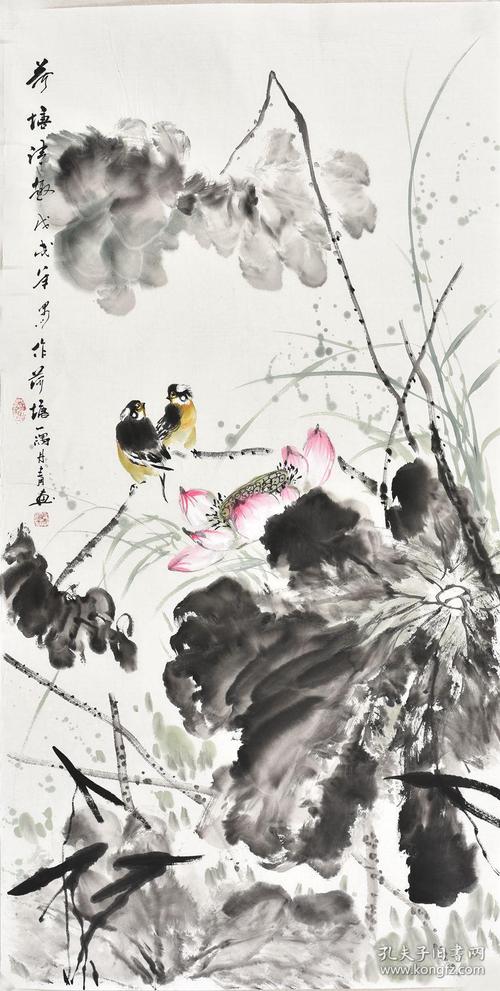 荷塘清趣戊戌年作荷塘一隅青画
孔夫子旧书网
www.kongfz.com